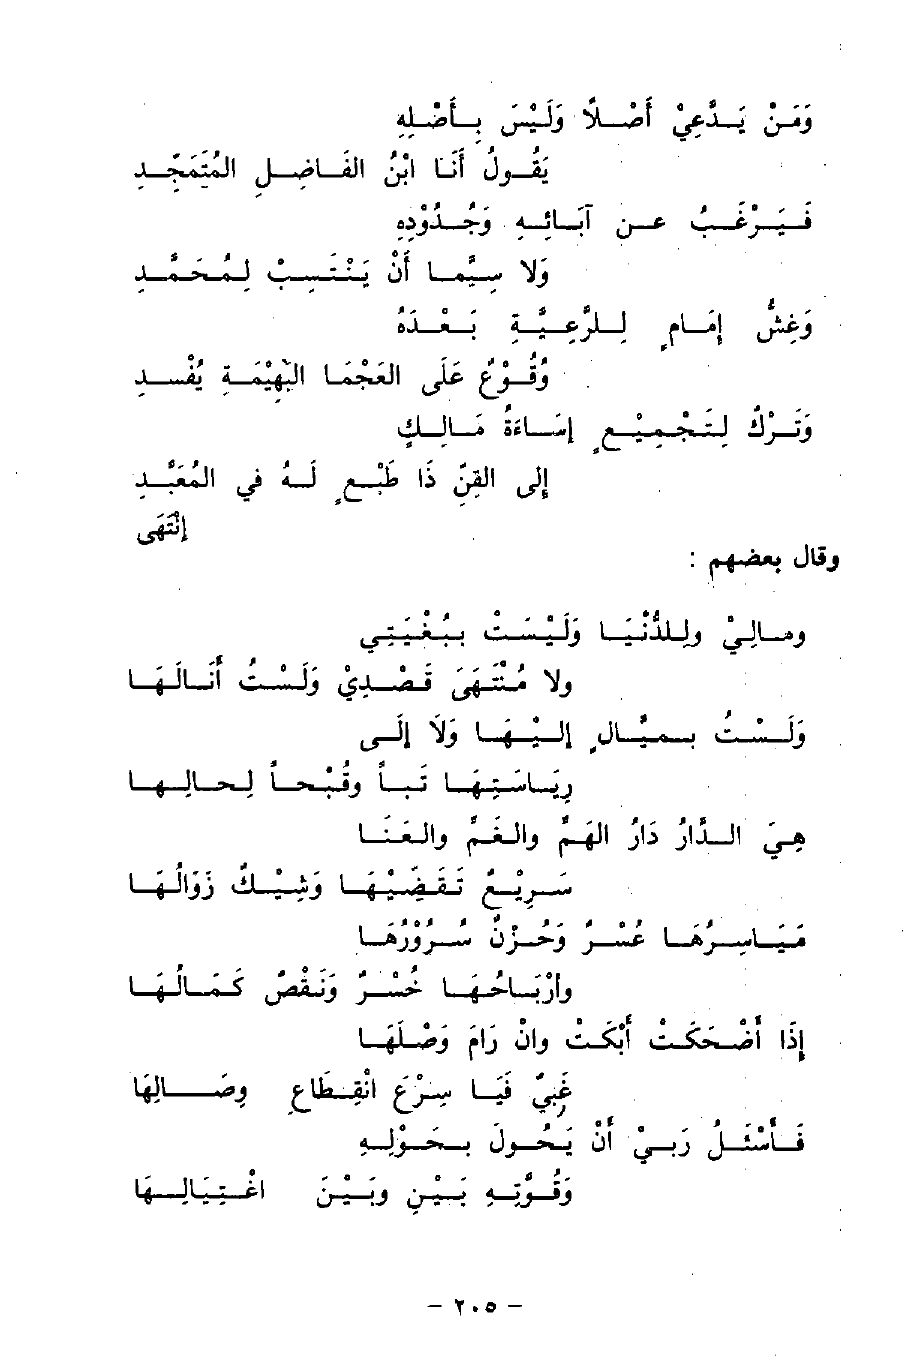 وَمَنْ يَدَّعِيْ أَصْلاً وَلَيْسَ بِأَصْلِهِ
يَقُولُ أَنَا ابْنُ الفَاضِلِ المُتَمَجِّدِ
فَيَرْغَبُ عن آبَائِهِ وَجُدُوْدِهِ
وَلا سِيَّمَا أَنْ يَنْتَسِبْ لِمُحَمَّدِ
وَغِشُّ إِمَامٍ لِلرَّعِيَّةِ بَعْدَهُ
وُقُوْعٌ عَلَى العَجْمَا البَهِيْمَةِ يُفْسِدِ
وَتَرْكٌ لِتَجْمِيْعٍ إِسَاءَةُ مَالِكٍ
إِلى القِنِّ ذَا طَبْعٍ لَهُ في المُعَبَّدِ
إِنْتَهَى
وقال بعضهم :
ومالِيْ ولِلدُّنْيَا وَلَيْسَتْ بِبُغْيَتِي
ولا مُنْتَهَى قَصْدِيْ وَلَسْتُ أَنَالَهَا
وَلَسْتُ بِميَّالٍ إِليْهَا وَلاَ إِلَى
رِيَاسَتِهَا تَباً وقُبْحاً لِحالِها
هِيَ الدَّارُ دَارُ الهَمِّ والغَمِّ والعَنَا
سَرِيْعٌ تَقَضِّيْهَا وَشِيْكٌ زَوَالُهَا
مَيَاسِرُهَا عُسْرٌ وَحُزْنٌ سُرُوْرُهَا
وأرْبَاحُهَا خُسْرٌ وَنَقْصٌ كَمَالُهَا
إِذَا أَضْحَكَتْ أَبْكَتْ وانْ رَامَ وَصْلَهَا
غَبِيٌّ فَيَا سِرْعَ انْقِطَاعِ وِصَالِهَا
فَأَسْئَلُ رَبيْ أَنْ يَحُولَ بِحَوْلِهِ
وَقُوَّتِهِ بَيْنِ وبَيْنَ اغْتِيَالِهَا
- ٢٠٥ -